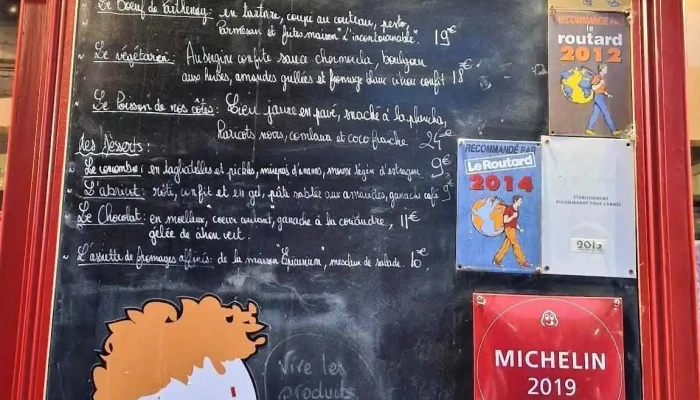 Le Boeuf de Parthenay: en tartare, coupé au couteau, pesto,
Parmesan et frites maison "L'incontournable". 19€
Le végétarien: Aubergine confite sauce chermoula, boulgour
aux herbes, amandes grillées et fromage blanc citron confit 18€
Le Poisson de nos côtes: Lieu jaune en pavé, snacké à la plancha,
Haricots verts, combava et coco fraîche 24€
Les desserts:
Le concombre: en tagliatelles et pickles, d'ananas, mousse légère d'estragon 9€
L'abricot: rôti, confit et en gel, pâte sablée aux amandes, ganache café 9€
Le Chocolat: en moelleux, coeur coulant, ganache à la coriandre, 11€
gelée de citron vert.
L'assiette de fromages affinés: de la maison "Epicurium", mesclun de salade. 10€
Vive les
produits
le
routard
2012
RECOMMANDÉ PAR
Le Routard
2014
ÉTABLISSEMENT
RECOMMANDÉ POUR L'ANNÉE
2015
MICHELIN
2019